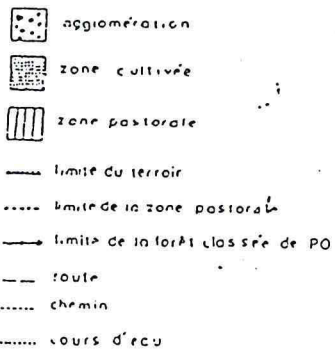 agglomération
zone cultivée
zone pastorale
limite du terroir
limite de la zone pastorale
limite de la forêt classée de PO
route
chemin
cours d'eau